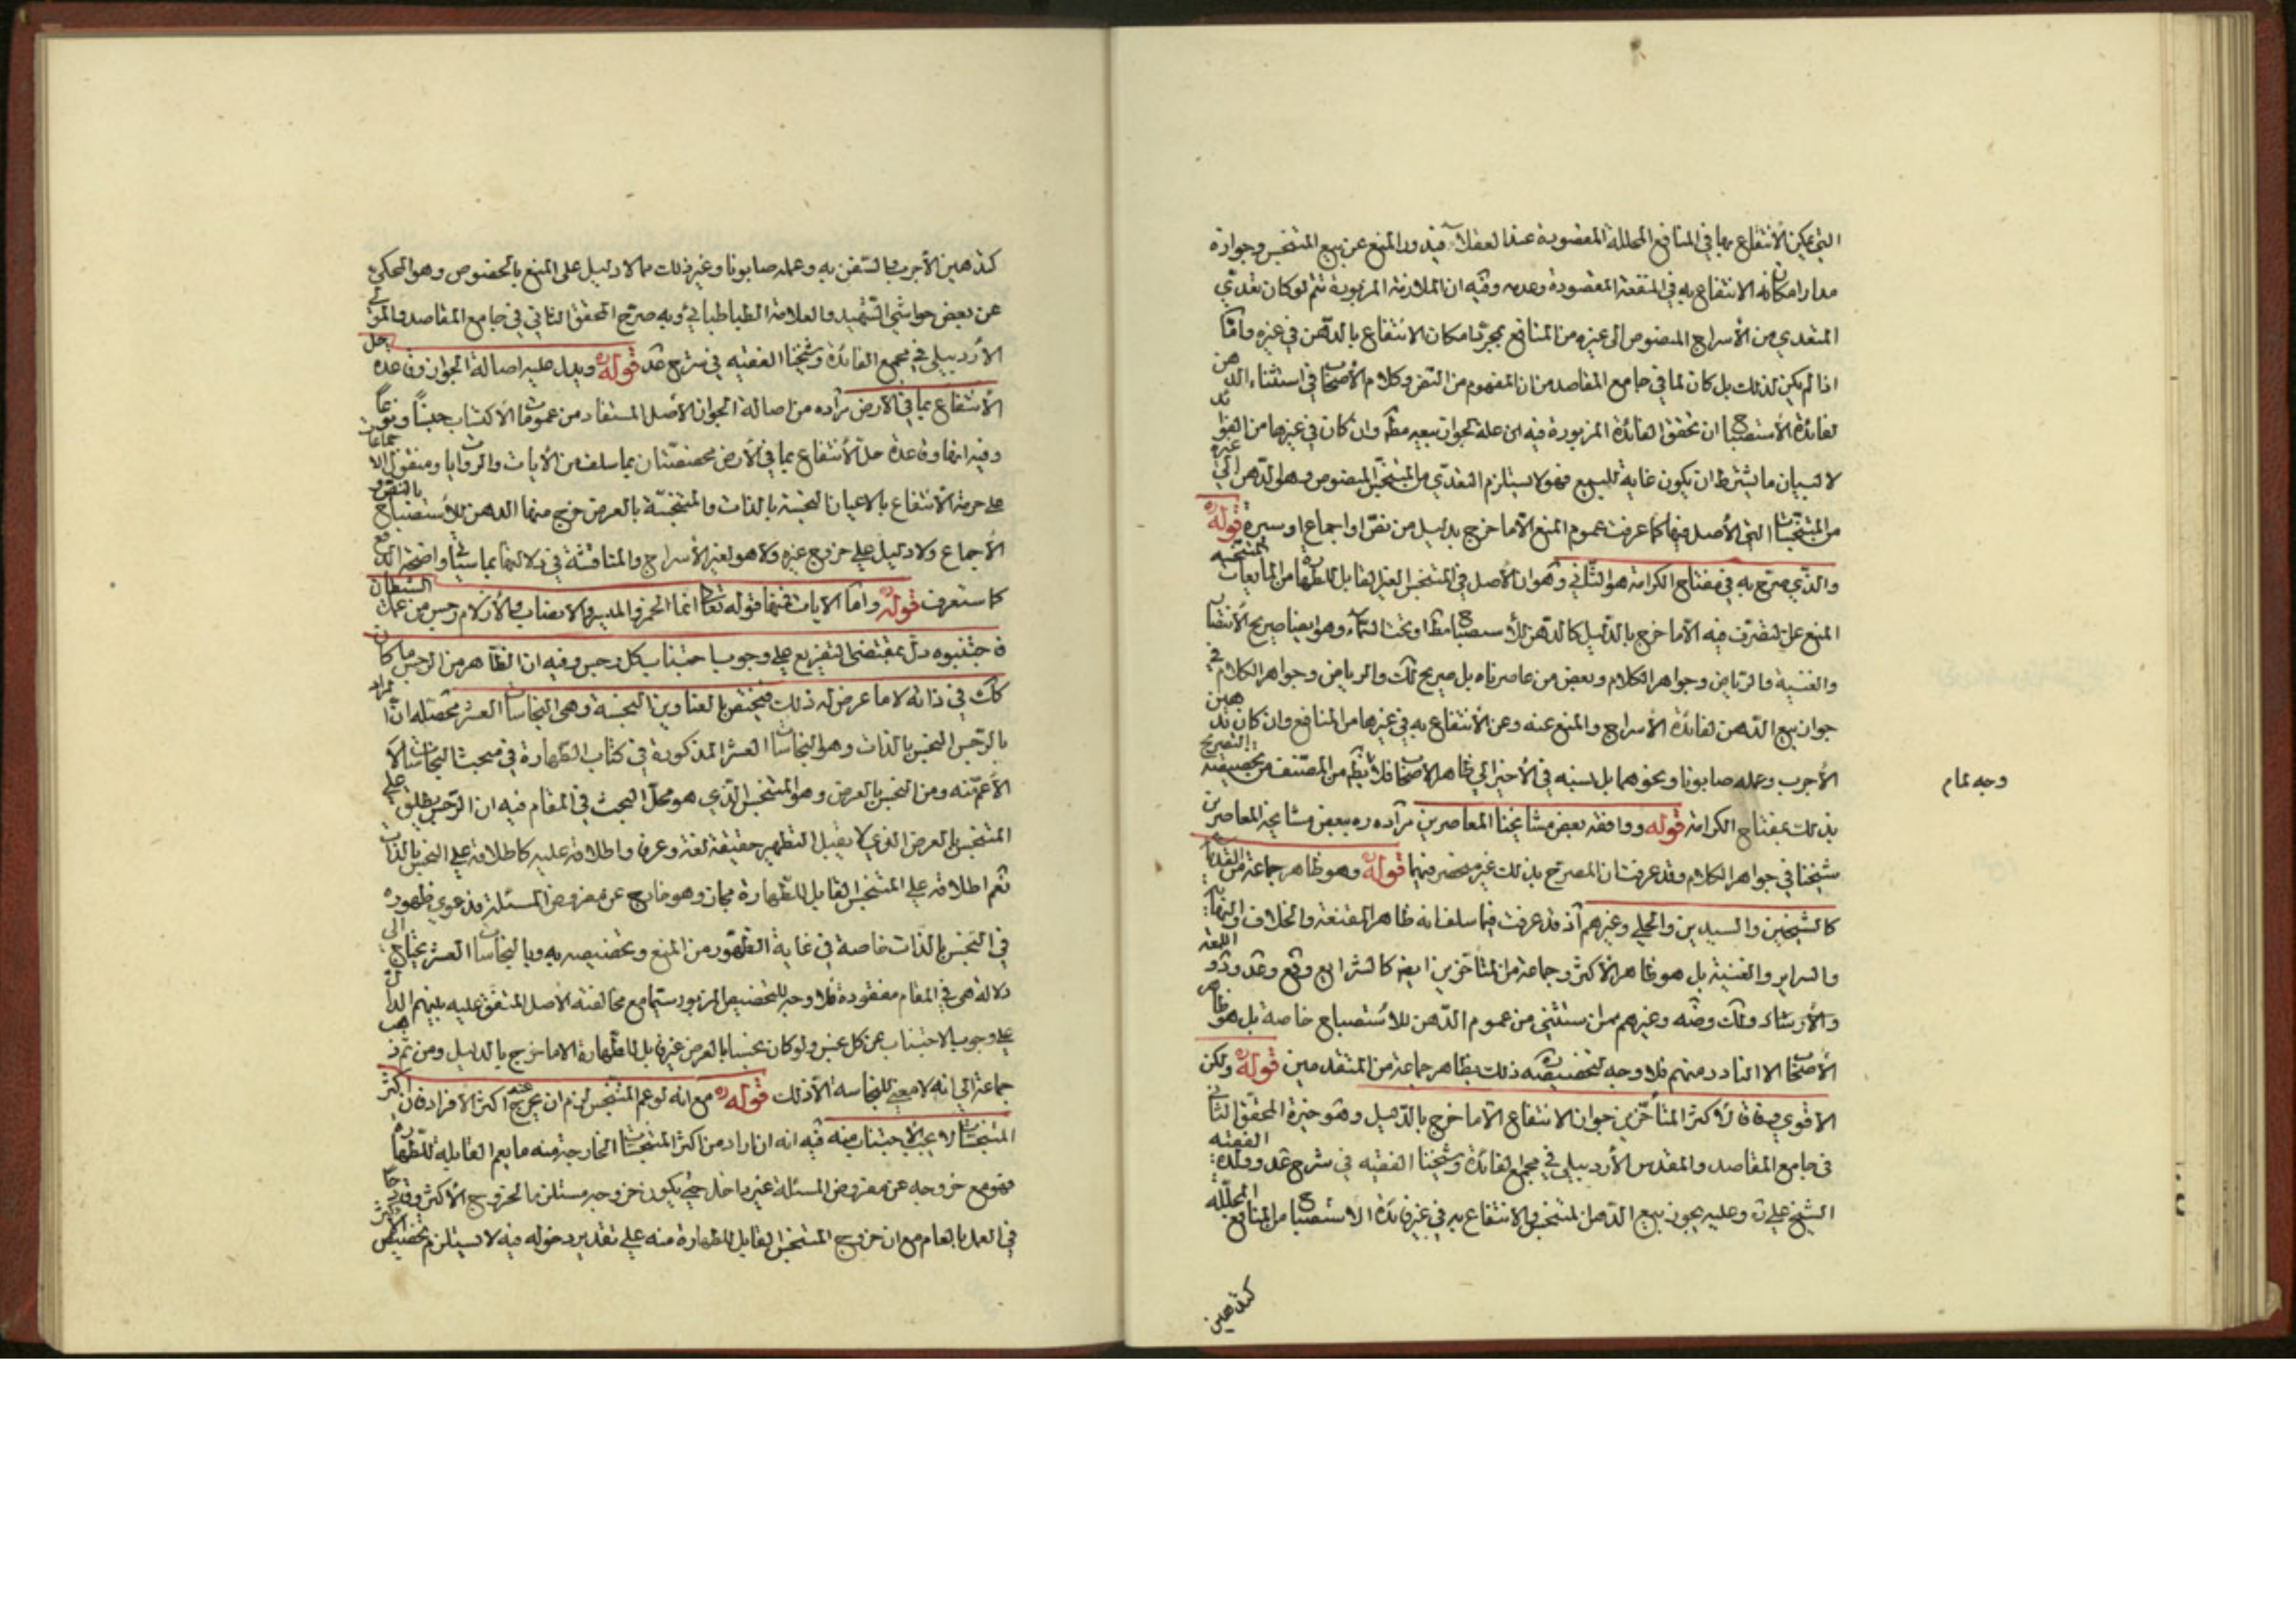 التي يمكن الانتفاع بها في المنافع المحللة المقصودة عند العقلاء فيدور المنع عن بيع المتنجس وجوازه
مدار امكان الانتفاع به في المنفعة المقصودة وعدمه وفيه ان الملازمة المزبورة تتم لو كان تعدي
المتعدي من الأسراج المنصوص الى غيره من المنافع بمجرد امكان الانتفاع بالدهن في غيره واما
اذا لم يكن لذلك بل كان لما في جامع المقاصد من ان المفهوم من النص وكلام الأصحاب في استثناء الدهن
لفائدة الأستصباح ان تحقق الفائدة المزبورة فيه اين علة لجواز بيعه مطلقا وان كان في غيرها من الفوائد
لا لبيان ما يشترط ان يكون غاية للبيع فهو لا يستلزم التعدي من المتنجس المنصوص وهو الدهن الى غيره
من المتنجسات التي الأصل فيها كما عرفت عموم المنع الا ما خرج بدليل من نص او اجماع او سيرة قوله ره
والذي صرح به في مفتاح الكرامة هو الثاني وهو ان الأصل في المتنجس الغير القابل للطهارة من المايعات المتنجسة
المنع عن التصرف فيه الا ما خرج بالدليل كالدهن للأستصباح مطلقا او تحت السماء وهو ايضا صريح الأنتصار
والغنية والرياض وجواهر الكلام وبعض من عاصرناه بل صريح لك والرياض وجواهر الكلام في
جواز بيع الدهن لفائدة الأسراج والمنع عنه وعن الأنتفاع به في غيرها من المنافع وان كان تدهين
الأجرب وعمله صابونا ونحوهما بل نسبه في الأخير الى ظاهر الأصحاب فلا يظهر من المصنف من تخصيصه التصريح
بذلك بمفتاح الكرامة قوله ووافقه بعض مشايخنا المعاصرين مراده ره ببعض مشايخه المعاصرين
شيخنا في جواهر الكلام وقد عرفت ان المصرح بذلك غير منحصر فيهما قوله ره وهو ظاهر جماعة من القدماء
كالشيخين والسيدين والحلي وغيرهم اذ قد عرفت فيما سلف انه ظاهر المقنعة والخلاف والنهاية
والسراير والغنية بل هو ظاهر الأكثر وجماعة من المتأخرين ايضا كالشرايع وقع وعد ود واللمعة
والأرشاد ولك وضه وغيرهم ممن استثنى من عموم الدهن للأستصباح خاصة بل هو ظاهر
الأصحاب الا النادر منهم فلا وجه لتخصيصه ذلك بظاهر جماعة من المتقدمين قوله ره ولكن
الأقوى وفاقا لأكثر المتأخرين جواز الانتفاع الا ما خرج بالدليل وهو خيرة المحقق الثاني
في جامع المقاصد والمقدس الأردبيلي في مجمع الفائدة وشيخنا الفقيه في شرح عد وولده الفقيه
الشيخ علي ق وعليه يجوز بيع الدهن المتنجس والانتفاع به في غير فائدة الاستصباح من المنافع المحللة
كتدهين
وجه تمام
كتدهين الأجرب والسفن به وعمله صابونا وغير ذلك مما لا دليل على المنع بالخصوص وهو المحكي
عن بعض حواشي الشهيد والعلامة الطباطبائي وبه صرح المحقق الثاني في جامع المقاصد والمولى
الأردبيلي في مجمع الفائدة وشيخنا الفقيه في شرح عد قوله ره ويدل عليه اصالة الجواز وقاعدة حل
الأنتفاع بما في الأرض مراده من اصالة الجواز الأصل المستفاد من عمومات الأكتساب جنسا ونوعا
وفيه انها وقاعدة حل الأنتفاع بما في الأرض مخصصتان بما سلف من الأيات والروايات ومنقول الاجماعات
على حرمة الأنتفاع بالاعيان النجسة بالذات والمتنجسة بالعرض خرج منها الدهن للأستصباح بالنص و
الأجماع ولا دليل على خروج غيره ولا هو لغير الأسراج والمناقشة في دلالتها بما سيأتي واضحة الدفع
كما ستعرف قوله ره واما الايات فمنها قوله تعالى انما الخمر والميسر والانصاب والأزلام رجس من عمل الشيطان
فاجتنبوه دل بمقتضى التفريع على وجوب اجتناب كل رجس وفيه ان الظاهر من الرجس ما كان
كك في ذاته لا ما عرض له ذلك فيختص بالعناوين النجسة وهي النجاسات العشر محصله ان المراد
بالرجس النجس بالذات وهو النجاسات العشر المذكورة في كتاب الطهارة في مبحث النجاسات لا
الأعم منه ومن النجس بالعرض وهو المتنجس الذي هو محل البحث في المقام فيه ان الرجس يطلق على
المتنجس بالعرض الذي لا يقبل التطهير حقيقة لغة وعرفا واطلاقه عليه كاطلاقه على النجس بالذات
نعم اطلاقه على المتنجس القابل للطهارة مجاز وهو خارج عن مفروض المسئلة فدعوى ظهوره
في النجس بالذات خاصة في غاية الظهور من المنع وتخصيصه به وبالنجاسات العشر يحتاج الى
دلالة هي في المقام مفقودة فلا وجه للتخصيص المزبور سيما مع مخالفته الأصل المتفق عليه بينهم الدال
على وجوب الاجتناب عن كل نجس ولو كان نجسا بالعرض غير قابل للطهارة الا ما خرج بالدليل ومن ثم ذهب
جماعة الى انه لا معنى للنجاسة الا ذلك قوله ره مع انه لو عم المتنجس لزم ان يخرج عنه اكثر الأفراد فان اكثر
المتنجسات لا يجب الأجتناب منه فيه انه ان اراد من اكثر المتنجسات الخارجة منه ما يعم القابلة للطهارة
فهو مع خروجه عن مفروض المسئلة غير داخل حتى يكون خروجه مستلزما لخروج الأكثر
في العمل بالعام مع ان خروج المتنجس القابل للطهارة منه على تقدير دخوله فيه لا يستلزم تخصيص الأكثر